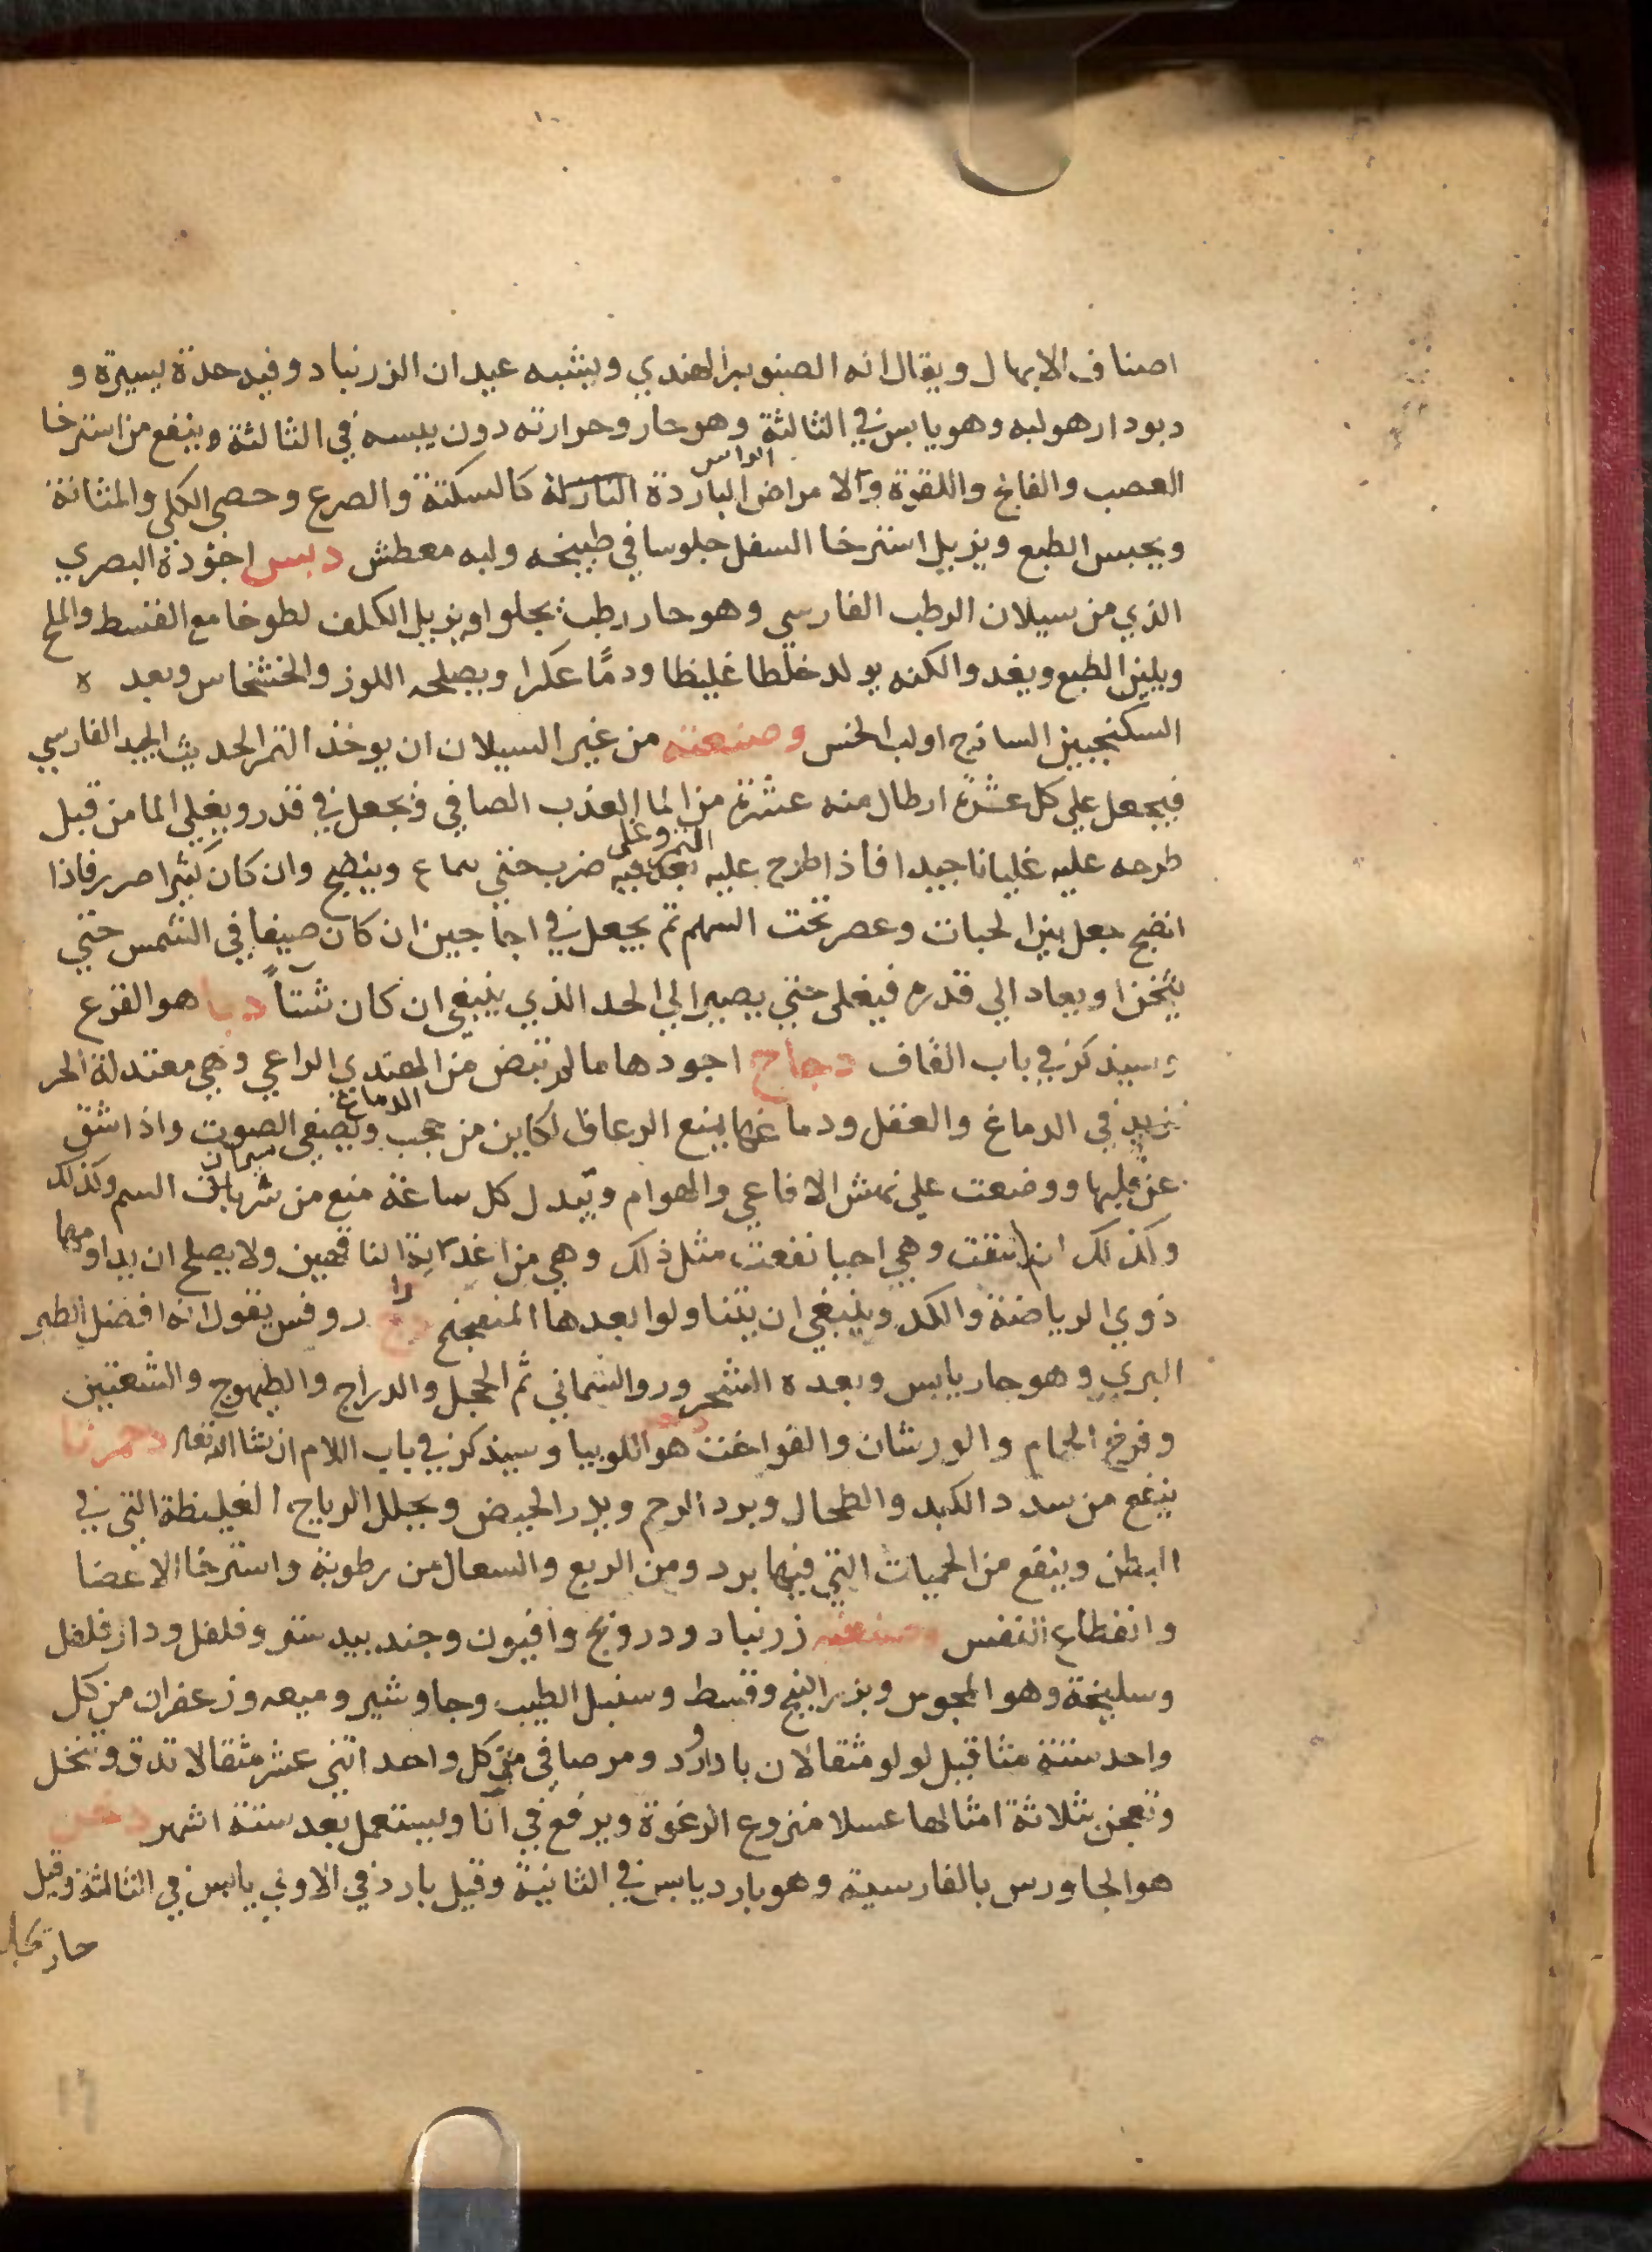 اصناف الابهال ويقال انه الصنوبر الهندي ويشبه عيدان الزرنباد وفيه حدة يسيرة و
ديودار هو لبه وهو يابس في الثالثة وهو حار وحرارته دون يبسه في الثالثة وينفع من استرخا
العصب والفالج واللقوة والامراض الباردة النازلة كالسكتة والصرع وحصى الكلي والمثانة
ويحبس الطبع ويزيل استرخا السفل جلوسا في طبيخه ولبه معطش دبس اجوده البصري
الذي من سيلان الرطب الفارسي وهو حار رطب يجلوا ويزيل الكلف لطوخا مع القسط والملح
ويلين الطبع ويغدوا لكنه يولد خلطا غليظا ودمًا عكرا ويصلحه اللوز والخشخاس وبعده
السكنجبين الساذج او لب الخس وصنعته من غير السيلان ان يوخذ التمر الحديث الجيد الفارسي
فيجعل علي كل عشرة ارطال منه عشرة من الما العذب الصافي فيجعل في قدر ويغلي الما من قبل
طرحه عليه غليانا جيدا فاذا طرح عليه التمر وغلى ضرب حتي يماع وينضج وان كان كثيرا فاذا
انضج جعل بين الحبات وعصر تحت السهم ثم يجعل في اجاجين ان كان صيفا في الشمس حتي
يثخن او يعاد الي قدره فيغلي حتي يصير الي الحد الذي ينبغي ان كان شتآً دبا هو القرع
وسيذكر في باب القاف دجاج اجودها ما لم تبض من الهندي الراعي وهي معتدلة الحر
تزيد في الدماغ والعقل ودماغها يمنع الرعاف الكاين من حجب الدماغ ويصفي الصوت واذا شق
عن قلبها ووضعت علي نهش الافاعي والهوام وتبدل كل ساعة منع من سريان السم وكذلك
وكذلك ان شقت وهي احيا نفعت مثل ذلك وهي من اغذية الناقهين ولا يصلح ان يداومها
ذوي الرياضة والكد وينبغي ان يتناولوا بعدها دراج روفس يقول انه افضل الطير
البري وهو حار يابس وبعده الشحرور والسماني ثم الحجل والدراج والطيهوج والشفنين
وفرخ الحمام والورشان والفواخت هو اللوبيا وسيذكر في باب اللام ان شا الله تعالى دحمرثا
ينفع من سدد الكبد والطحال وبرد الرحم ويدر الحيض ويحلل الرياح الغليظة التي في
البطن وينفع من الحميات التي فيها برد ومن الربع والسعال من رطوبة واسترخا الاعضا
وانقطاع النفس وصنعته زرنباد ودرونج وافيون وجندبيدستر وفلفل ودارفلفل
وسليخة وهو المجوس وبزر البنج وقسط وسنبل الطيب وجاوشير وميعه وزعفران من كل
واحد ستة مثاقيل لولو مثقالان باداورد ومر صافي من كل واحد اثني عشر مثقالا تدق وتنخل
وتعجن بثلاثة امثالها عسلا منزوع الرغوة ويرفع في آنا ويستعمل بعد ستة اشهر دخن
هو الجاورس بالفارسية وهو بارد يابس في الثانية وقيل بارد في الاولي يابس في الثالثة وقيل
حار